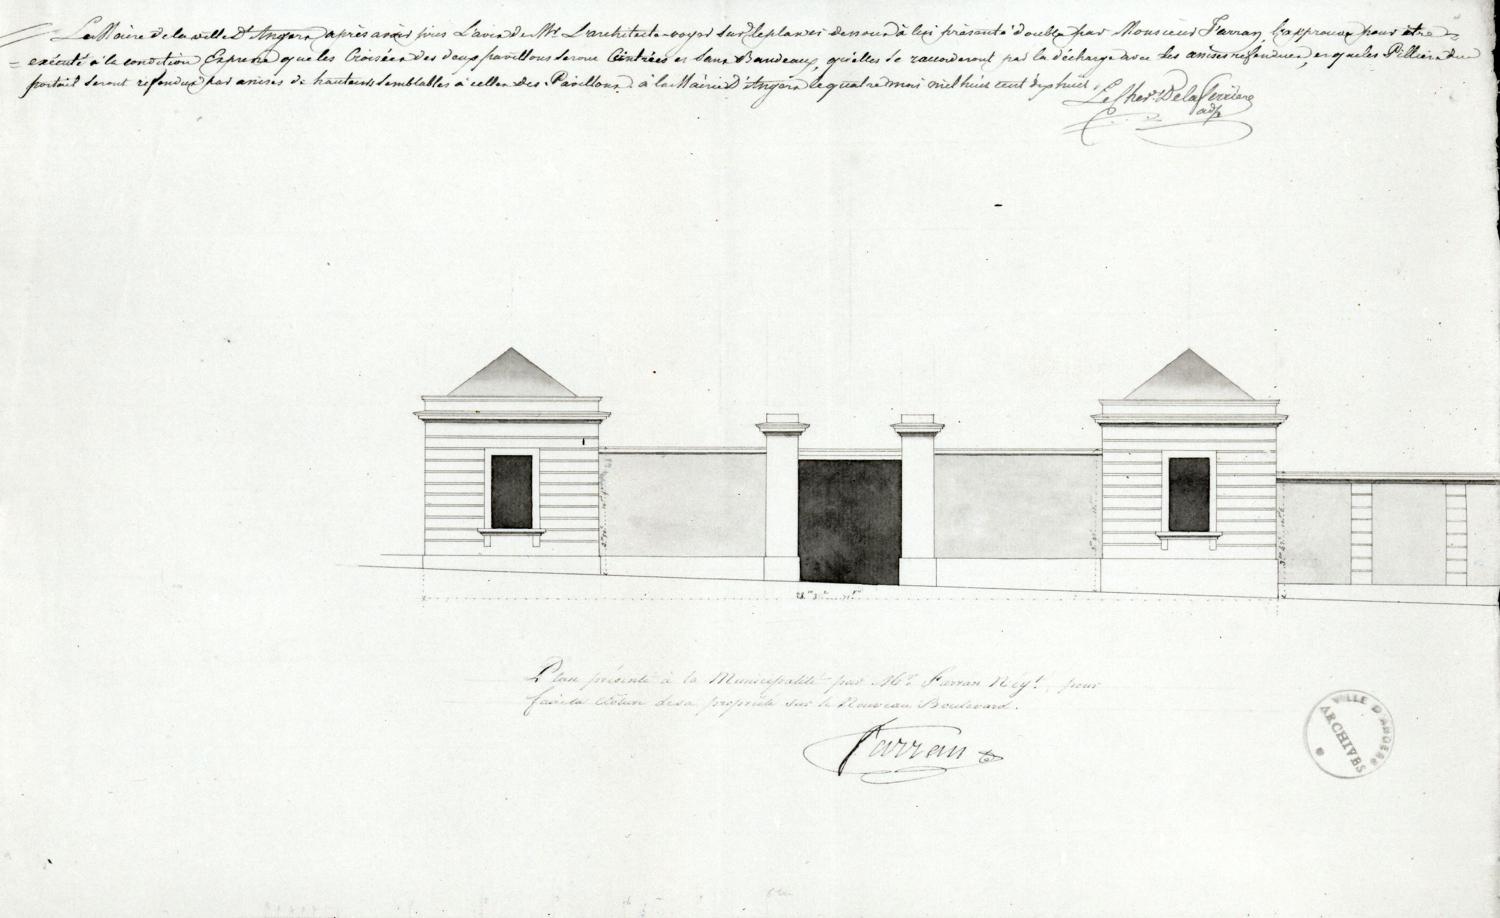 Le Maire de la ville D'Angers après avoir pris L'avis de Mr L'architecte-voyer sur le plan ci dessous à lui présenté double par Monsieur Farran, L'approuve pour être =
= exécuté à la condition Expresse que les Croisées des deux pavillons seront Ceintrées et Sans Bandeaux, qu'elles se raccorderont par la décharge avec les assises refendues, et que les Pilliers du
portail seront refendus par assises de hauteurs semblables à celles des Pavillons. à la Mairie D'Angers le quatre mars mil huit cent dix huit.
Le Cher De la Perrière
adjt
Plan présenté à la Municipalité par Mr Farran Négt, pour
faire la clôture de sa propriété sur le Nouveau Boulevard.
Farran
VILLE D'ANGERS
ARCHIVES